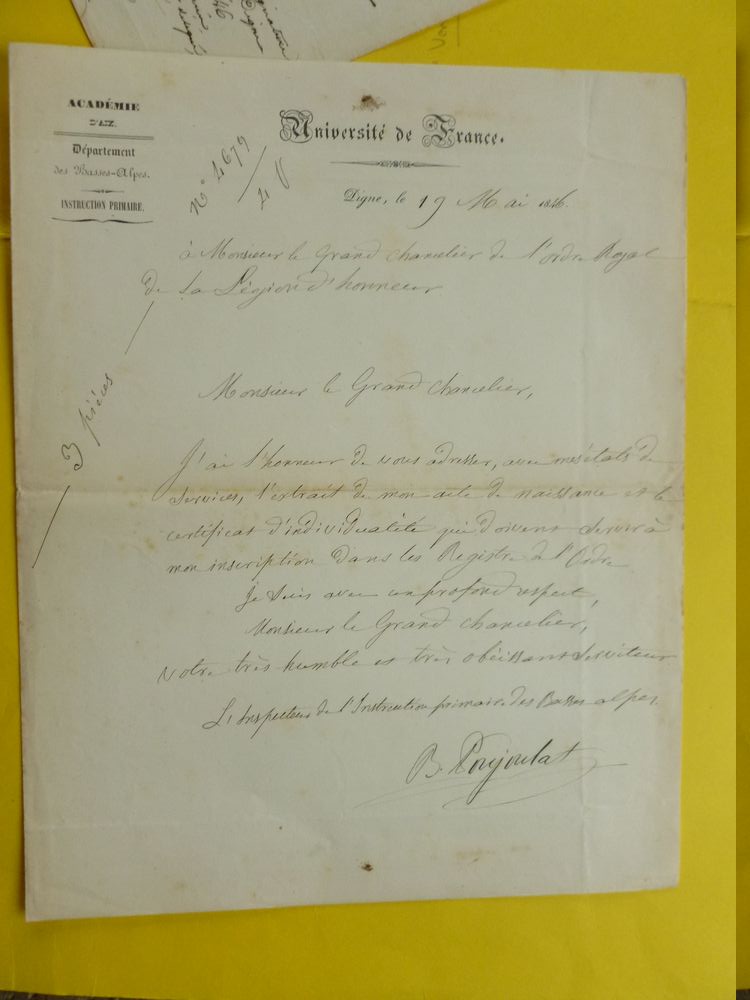 ACADÉMIE
D'AIX.
Département
des Basses-Alpes.
INSTRUCTION PRIMAIRE.
Université de France.
N° 4679
Digne, le 19 Mai 1846.
à Monsieur le Grand chancelier de l'ordre Royal
de la Légion d'honneur
3 pièces
Monsieur le Grand chancelier,
J'ai l'honneur de vous adresser, avec mes états de
services, l'extrait de mon acte de naissance et le
certificat d'individualité qui doivent servir à
mon inscription dans les Registre de l'Ordre
Je suis avec un profond respect,
Monsieur le Grand chancelier,
votre très humble et très obéissant serviteur
L'Inspecteur de l'Instruction primaire des Basses alpes.
B. Poujoulat